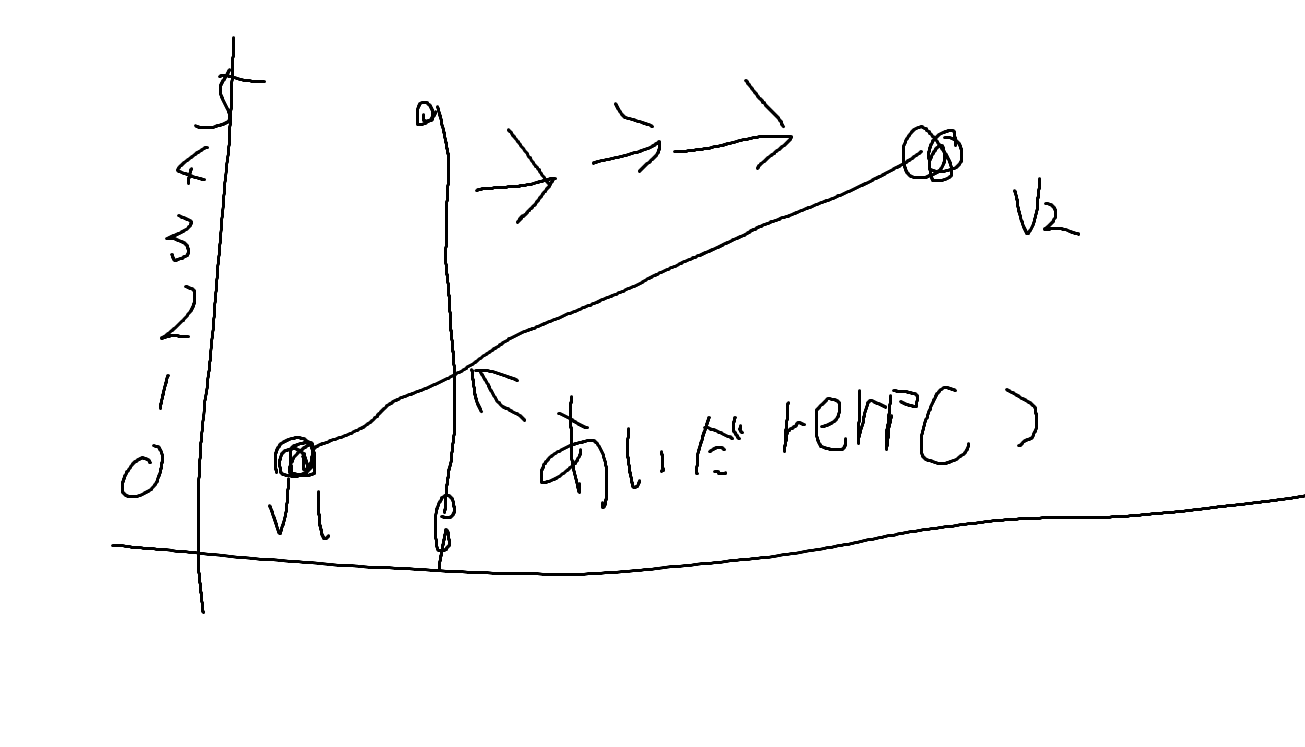 5
4
3
2
1
0
V1
V2
あいだ lerp( )